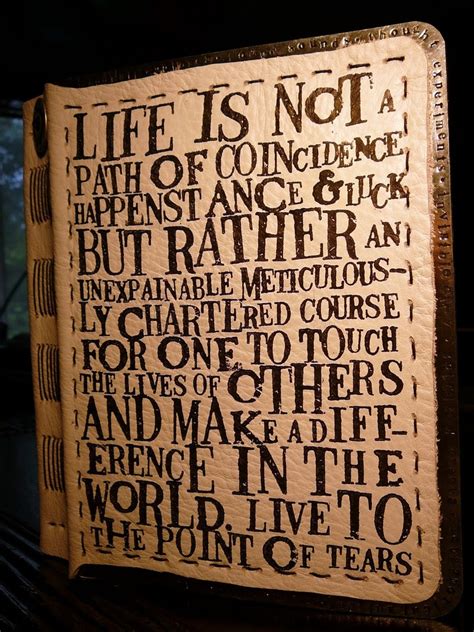 LIFE IS NOT A
PATH OF COINCIDENCE
HAPPENSTANCE & LUCK
BUT RATHER AN
UNEXPAINABLE METICULOUS-
LY CHARTERED COURSE
FOR ONE TO TOUCH
THE LIVES OF OTHERS
AND MAKE A DIFF-
ERENCE IN THE
WORLD. LIVE TO
THE POINT OF TEARS
sounds thought
experiments